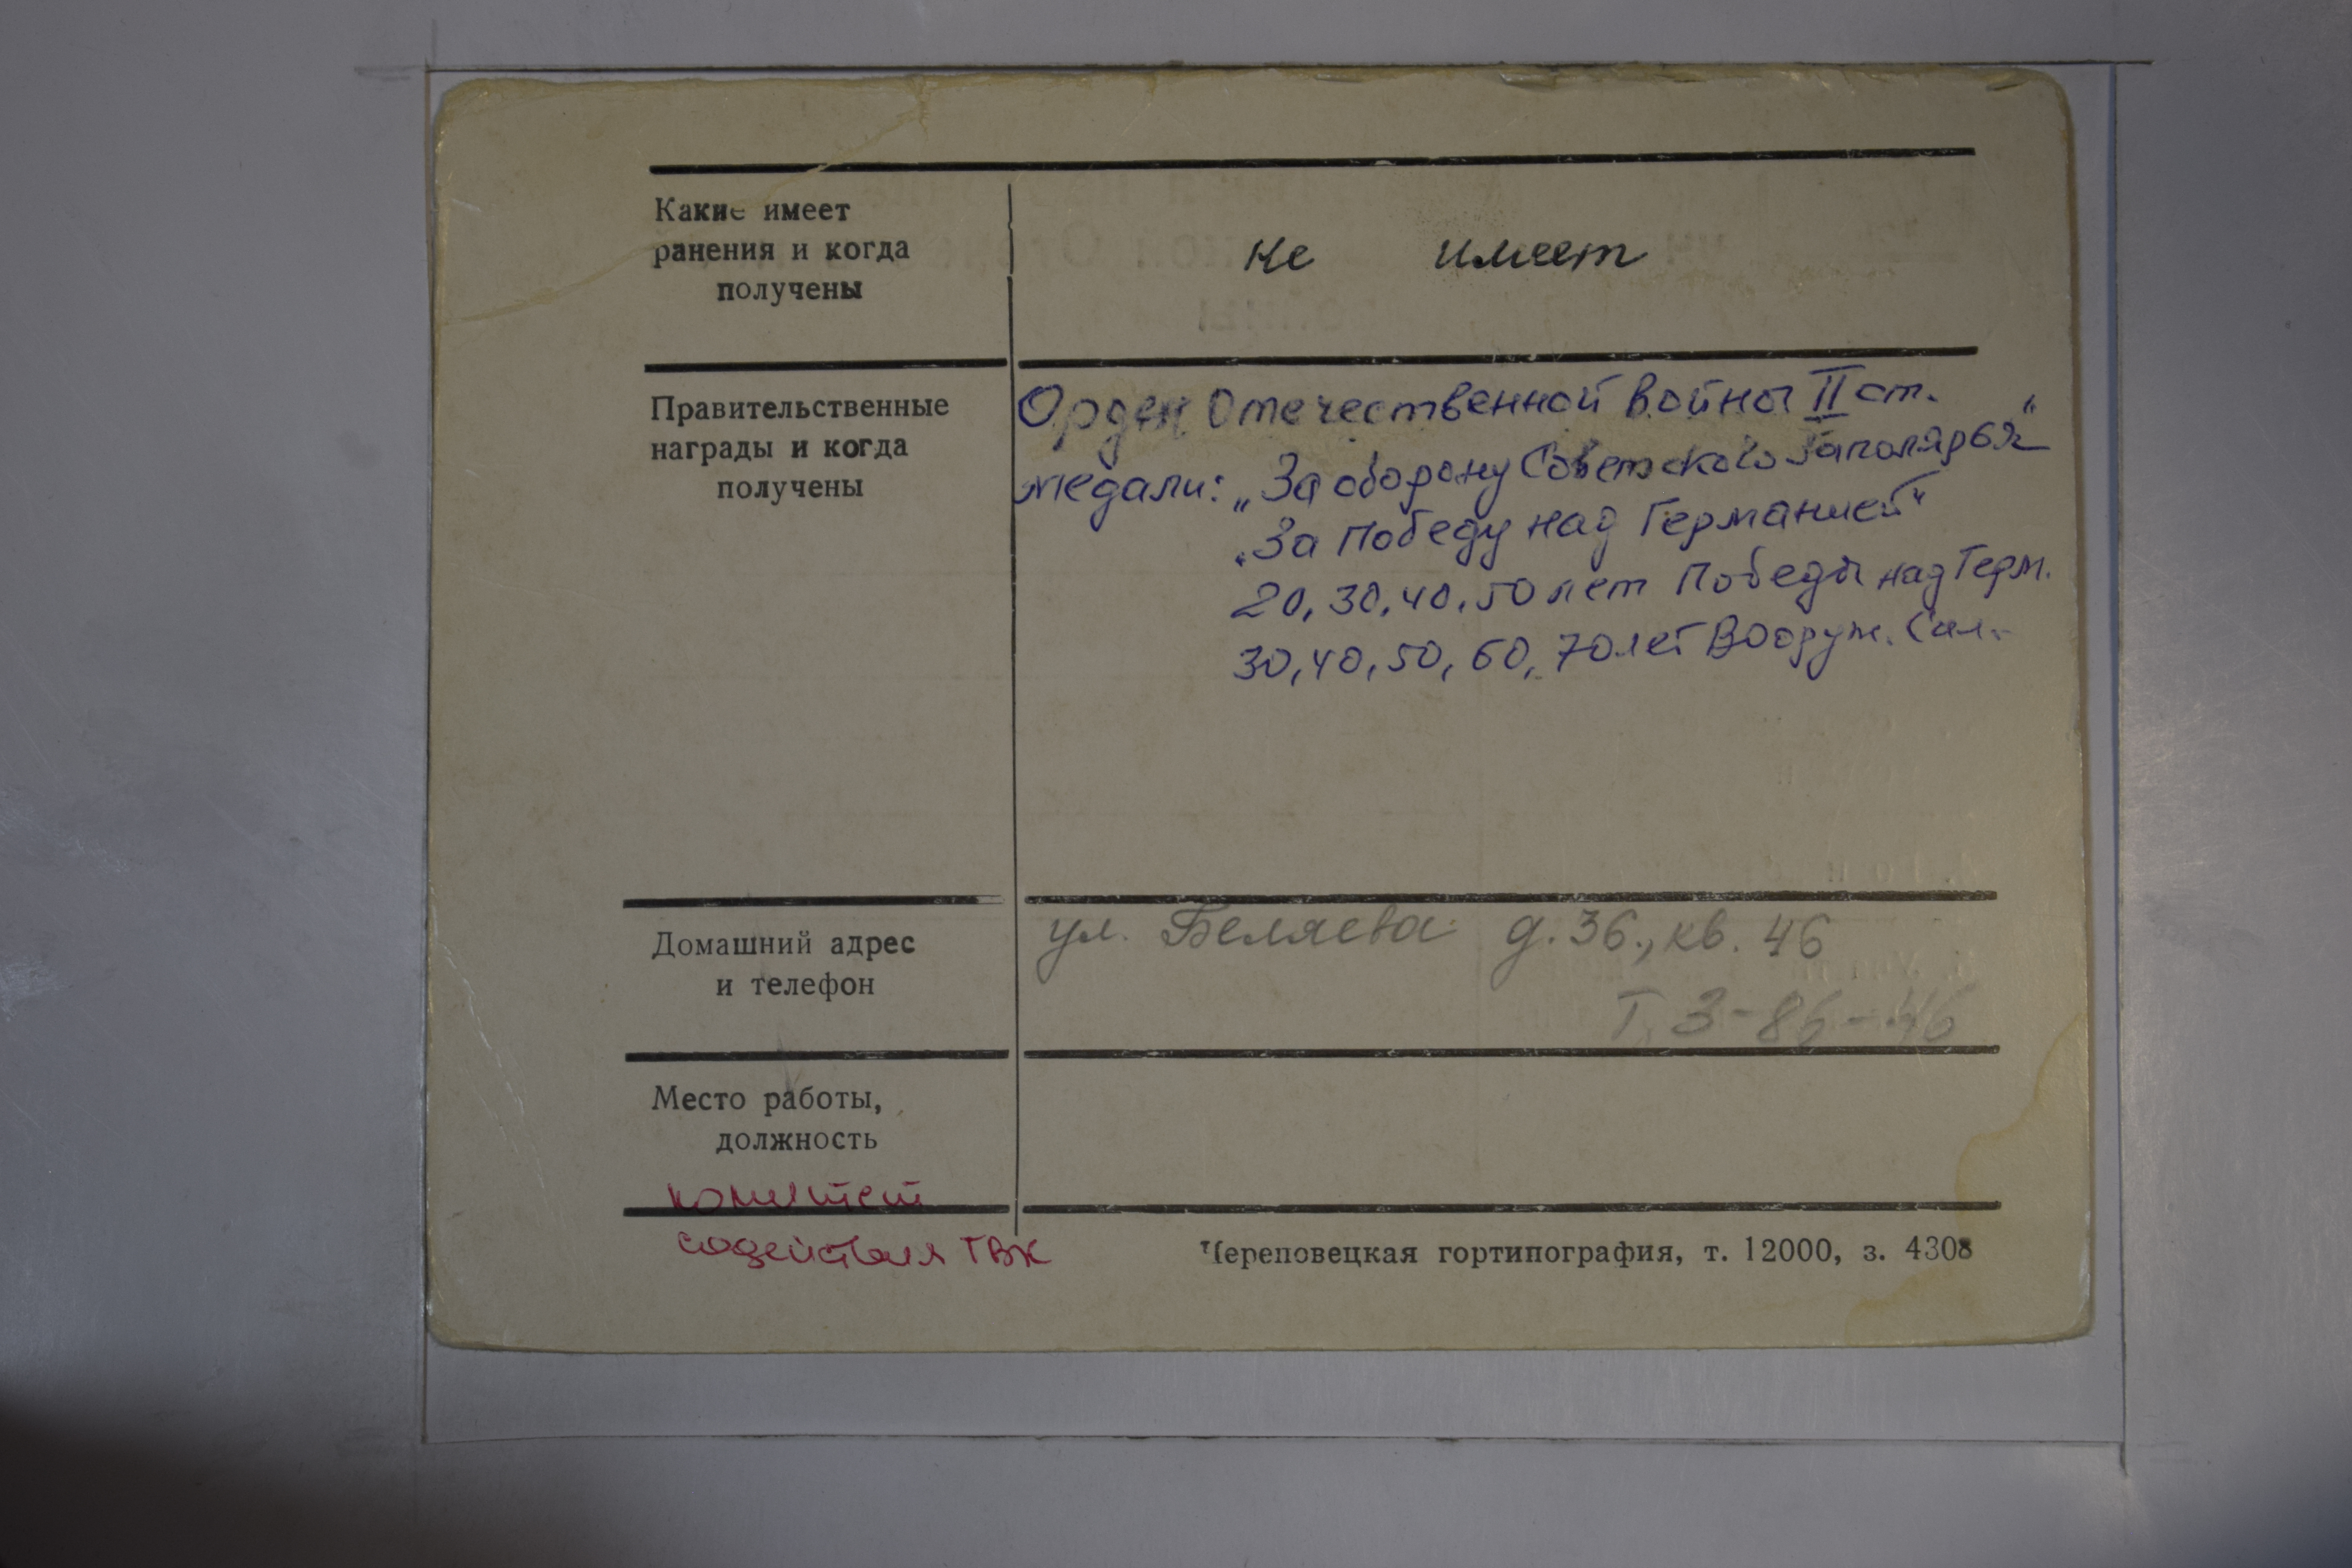 Какие имеет
ранения и когда
получены
не имеет
Правительственные
награды и когда
получены
Орден Отечественной войны II ст.
медали: „За оборону Советского Заполярья“
„За победу над Германией“
20, 30, 40, 50 лет Победы над Герм.
30, 40, 50, 60, 70 лет Вооруж. Сил.
Домашний адрес
и телефон
ул. Беляева д. 36., кв. 46
Т. 3-86-46
Место работы,
должность
комитет
содействия ГВК
Череповецкая гортипография, т. 12000, з. 4308